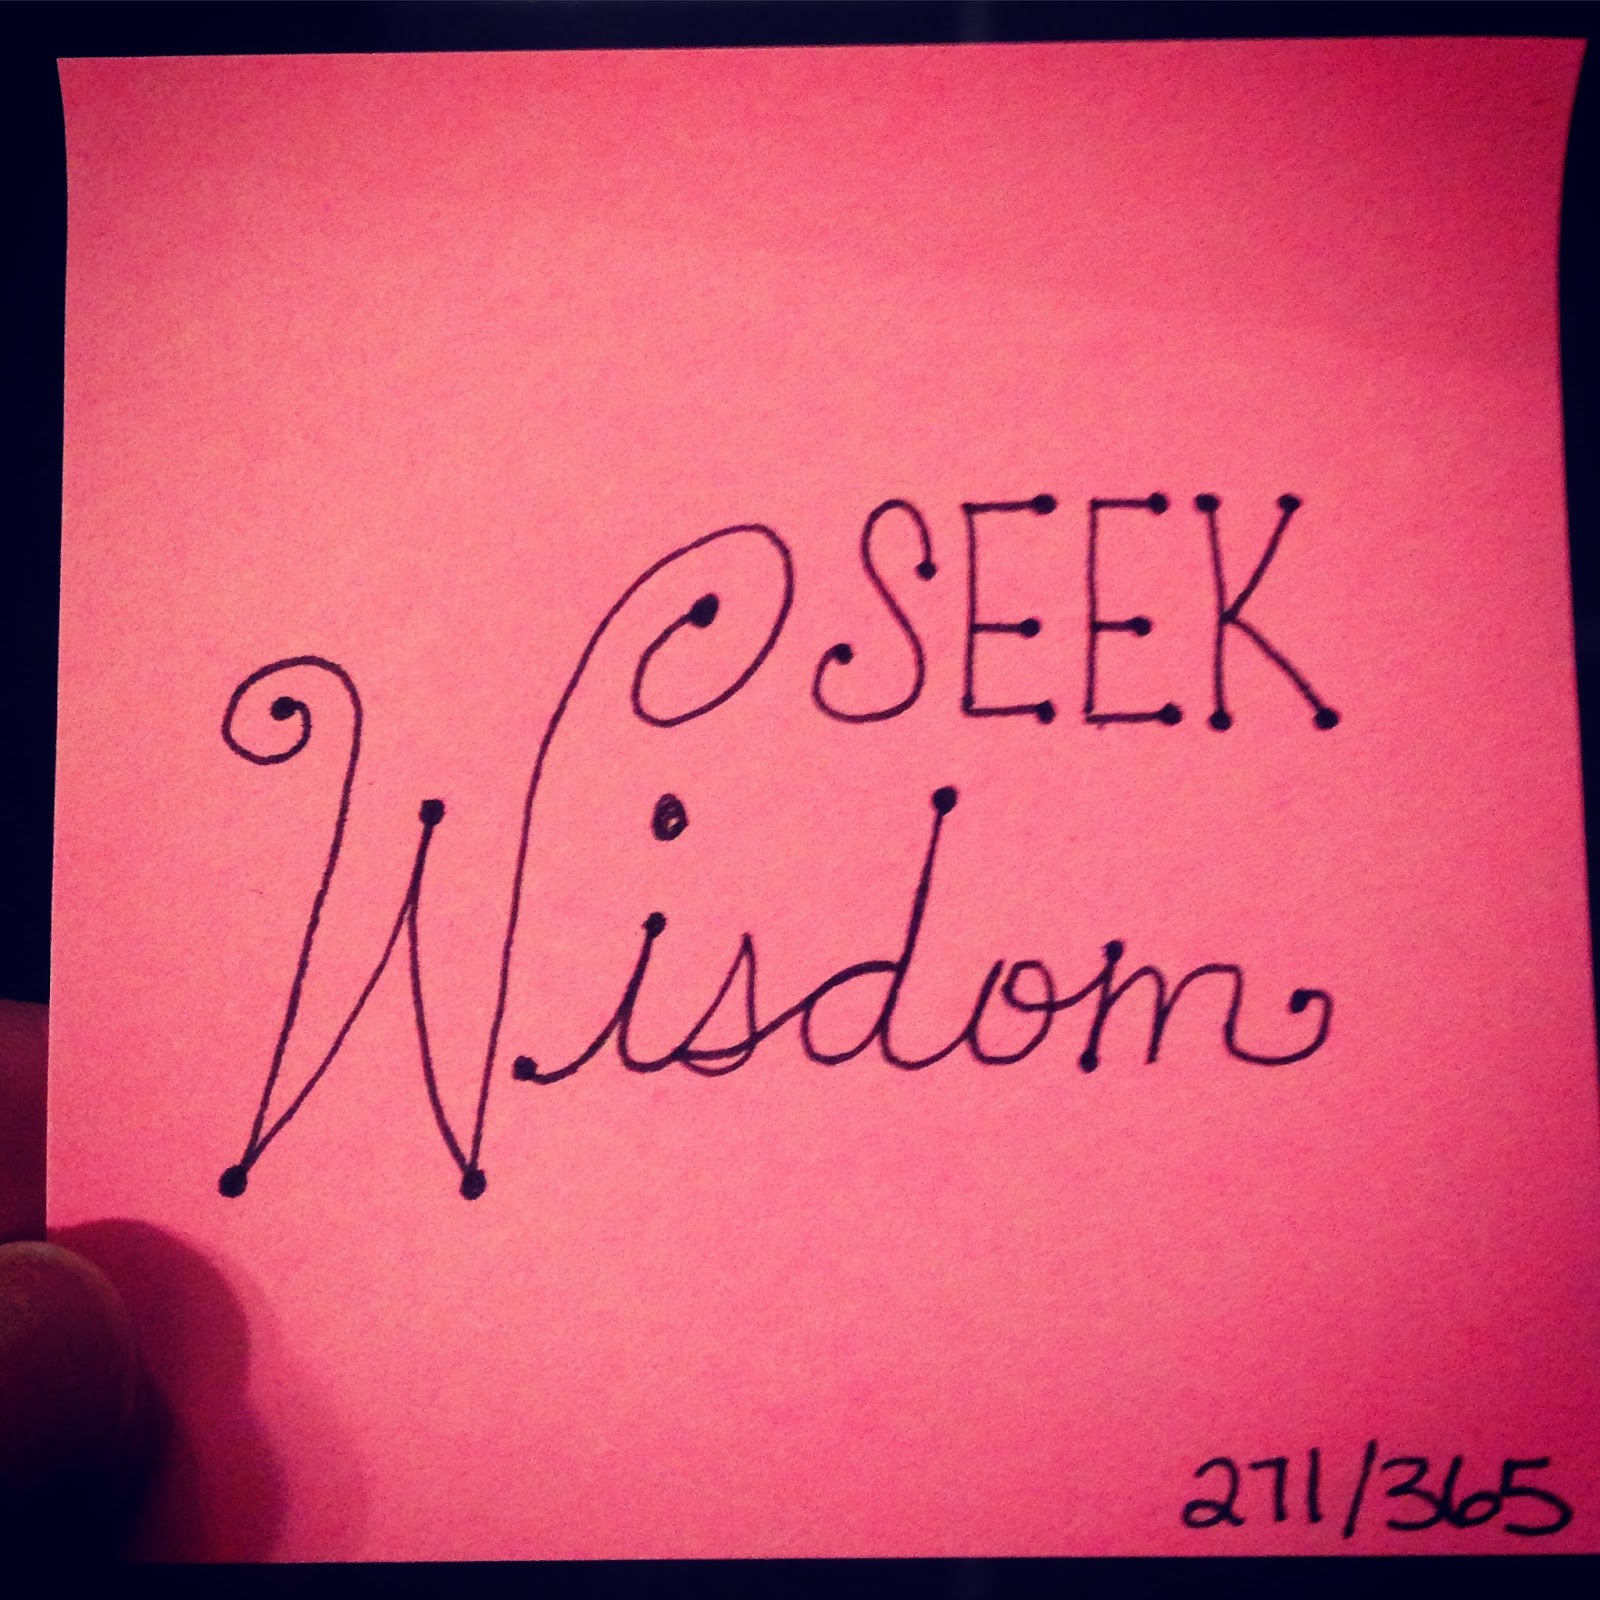 SEEK
Wisdom
271/365